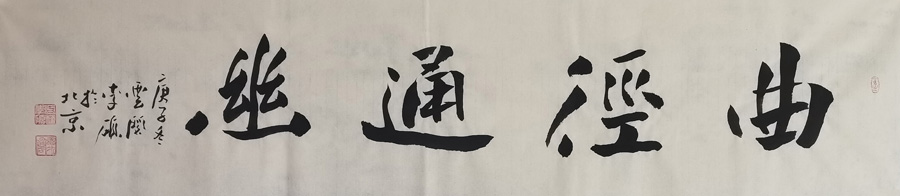 曲徑通幽
庚子冬
雲閣
李雄
於
北京